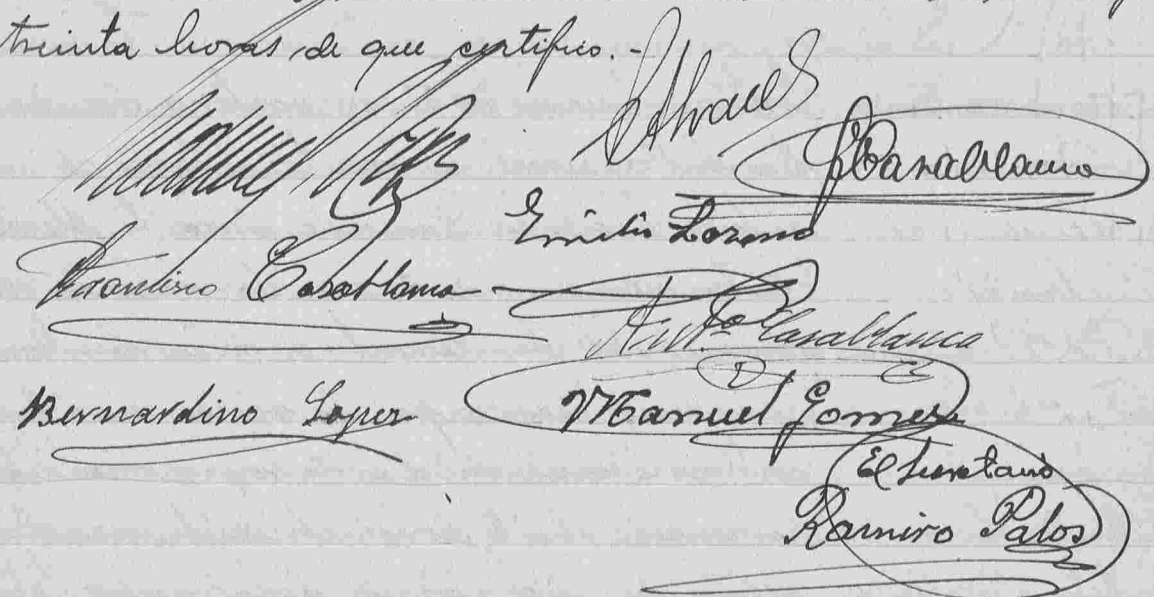 treinta horas de que certifico.-
JCasablanca
Emilio Lozano
Francisco Casablanca
Antº Casablanca
Bernardino Lopez
Manuel Gomez
El Secretario
Ramiro Palos